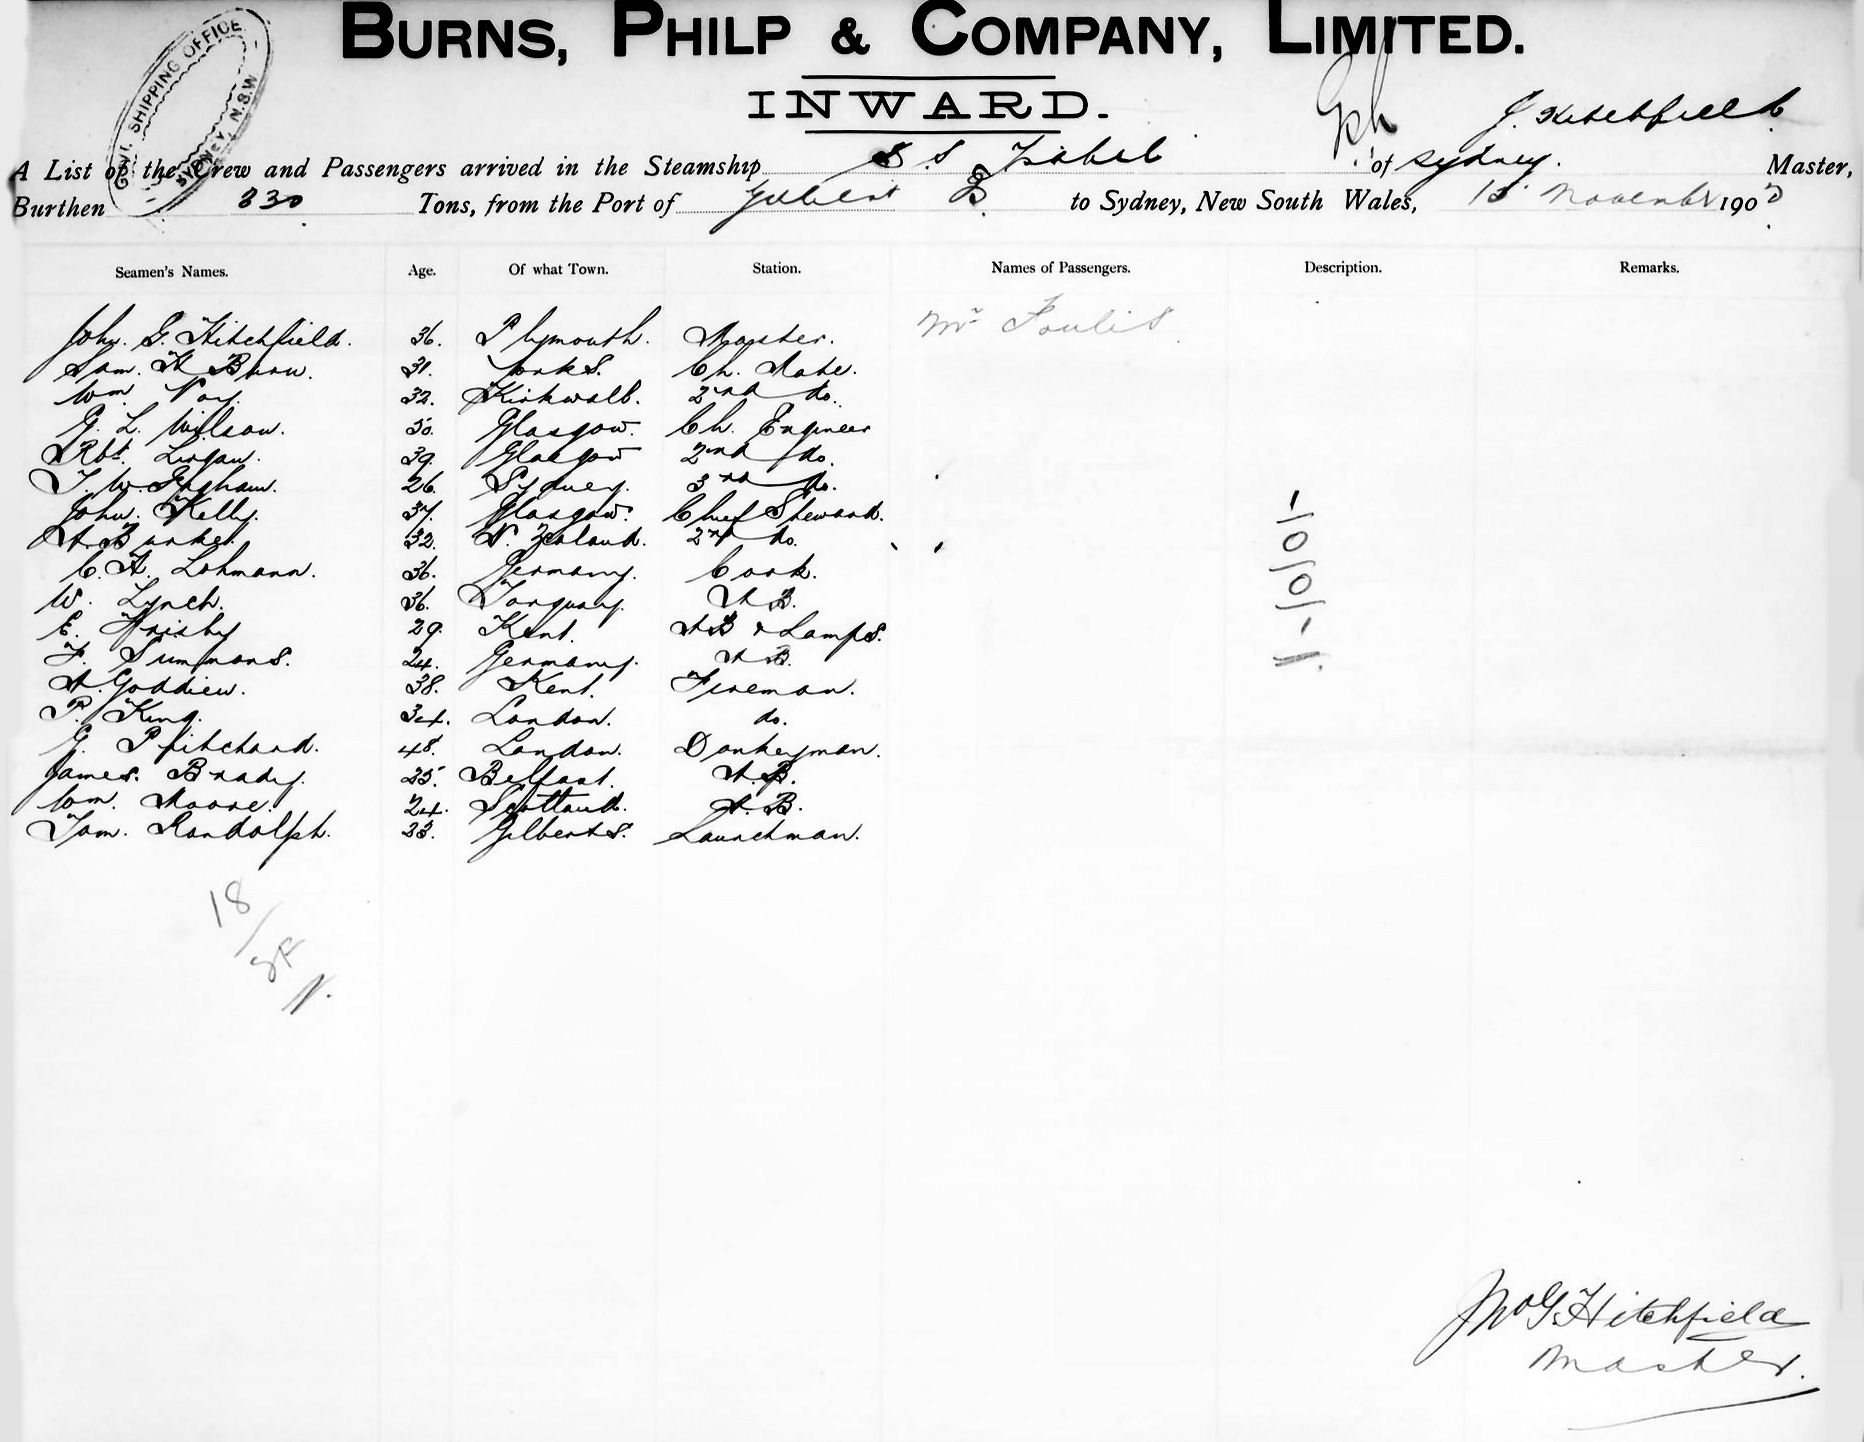 BURNS, PHILP & COMPANY, LIMITED.
INWARD.
GOVT. SHIPPING OFFICE SYDNEY, N.S.W
J. Hitchfield
A List of the Crew and Passengers arrived in the Steamship S S Isabel of Sydney. Master,
Burthen 330 Tons, from the Port of Gilbert to Sydney, New South Wales, 15 November 190
Seamen's Names. Age. Of what Town. Station. Names of Passengers. Description. Remarks.
John. G. Hitchfield. 36. Plymouth. Master. Mr Foulis
Sam. H 31. Yorks. Ch. Mate.
Wm 32. Kirkwall. 2nd do.
G. L. Wilson. 50. Glasgow. Ch. Engineer
Robt. Logan. 39. Glasgow 2nd do.
T. W. Ingham. 26. Sydney. 3rd do.
John. Kelly. 37. Glasgow. Chief Steward.
A. Barker. 32. N. Zealand. 2nd do.
C. A. Lohmann. 36. Germany. Cook.
W. Lynch. 36. Torquay. A B.
E. Frisby 29. Kent. AB & Lamps.
F. Simmons. 24. Germany. A B.
A. Godden. 38. Kent. Fireman.
P. King. 34. London. do.
G. Pritchard. 48. London. Donkeyman.
James. Brady. 25. Belfast. A.B.
Wm. Moore. 24. Scotland. A. B.
Tom. Randolph. 33. Gilberts. Launchman.
18
Jno G Hitchfield
Master.